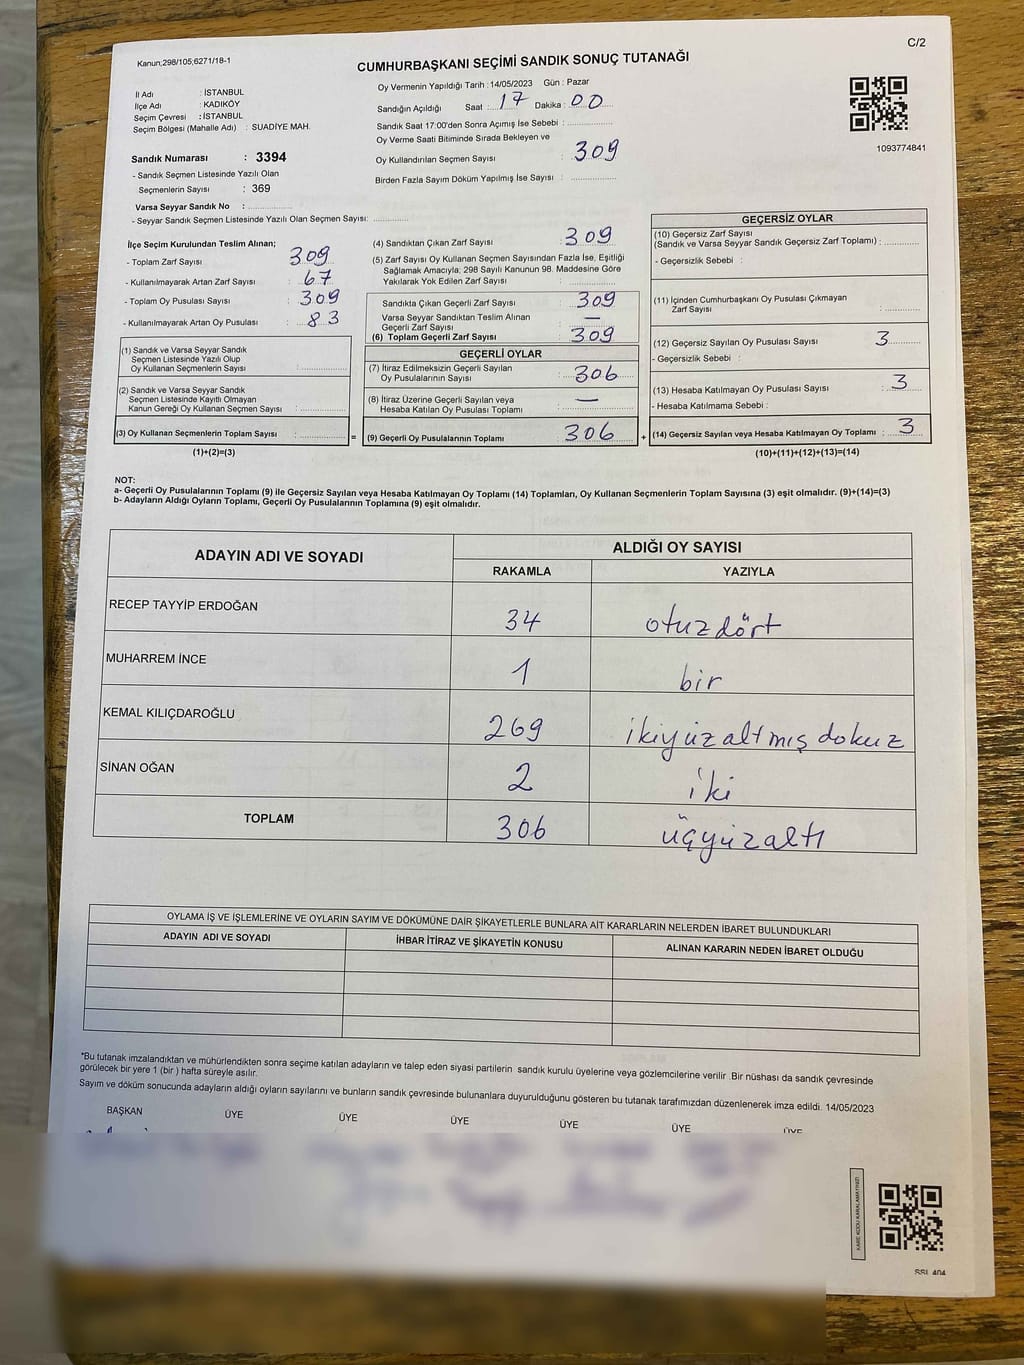 Kanun;298/105;6271/18-1
C/2
CUMHURBAŞKANI SEÇİMİ SANDIK SONUÇ TUTANAĞI
İl Adı : İSTANBUL
İlçe Adı : KADIKÖY
Seçim Çevresi : İSTANBUL
Seçim Bölgesi (Mahalle Adı) : SUADİYE MAH.
Sandık Numarası : 3394
- Sandık Seçmen Listesinde Yazılı Olan
Seçmenlerin Sayısı : 369
Varsa Seyyar Sandık No :
- Seyyar Sandık Seçmen Listesinde Yazılı Olan Seçmen Sayısı:
Oy Vermenin Yapıldığı Tarih : 14/05/2023 Gün : Pazar
Sandığın Açıldığı Saat : 17 Dakika : 00
Sandık Saat 17:00'den Sonra Açımış İse Sebebi :
Oy Verme Saati Bitiminde Sırada Bekleyen ve
Oy Kullandırılan Seçmen Sayısı : 309
Birden Fazla Sayım Döküm Yapılmış İse Sayısı :
1093774841
İlçe Seçim Kurulundan Teslim Alınan;
- Toplam Zarf Sayısı : 309
- Kullanılmayarak Artan Zarf Sayısı : 67
- Toplam Oy Pusulası Sayısı : 309
- Kullanılmayarak Artan Oy Pusulası : 83
(1) Sandık ve Varsa Seyyar Sandık
Seçmen Listesinde Yazılı Olup
Oy Kullanan Seçmenlerin Sayısı :
(2) Sandık ve Varsa Seyyar Sandık
Seçmen Listesinde Kayıtlı Olmayan
Kanun Gereği Oy Kullanan Seçmen Sayısı :
(3) Oy Kullanan Seçmenlerin Toplam Sayısı : =
(1)+(2)=(3)
(4) Sandıktan Çıkan Zarf Sayısı : 309
(5) Zarf Sayısı Oy Kullanan Seçmen Sayısından Fazla İse, Eşitliği
Sağlamak Amacıyla; 298 Sayılı Kanunun 98. Maddesine Göre
Yakılarak Yok Edilen Zarf Sayısı :
Sandıkta Çıkan Geçerli Zarf Sayısı : 309
Varsa Seyyar Sandıktan Teslim Alınan
Geçerli Zarf Sayısı : —
(6) Toplam Geçerli Zarf Sayısı : 309
GEÇERLİ OYLAR
(7) İtiraz Edilmeksizin Geçerli Sayılan
Oy Pusulalarının Sayısı : 306
(8) İtiraz Üzerine Geçerli Sayılan veya
Hesaba Katılan Oy Pusulası Toplamı : —
(9) Geçerli Oy Pusulalarının Toplamı : 306 +
GEÇERSİZ OYLAR
(10) Geçersiz Zarf Sayısı
(Sandık ve Varsa Seyyar Sandık Geçersiz Zarf Toplamı) :
- Geçersizlik Sebebi :
(11) İçinden Cumhurbaşkanı Oy Pusulası Çıkmayan
Zarf Sayısı :
(12) Geçersiz Sayılan Oy Pusulası Sayısı : 3
- Geçersizlik Sebebi :
(13) Hesaba Katılmayan Oy Pusulası Sayısı : 3
- Hesaba Katılmama Sebebi :
(14) Geçersiz Sayılan veya Hesaba Katılmayan Oy Toplamı : 3
(10)+(11)+(12)+(13)=(14)
NOT:
a- Geçerli Oy Pusulalarının Toplamı (9) ile Geçersiz Sayılan veya Hesaba Katılmayan Oy Toplamı (14) Toplamları, Oy Kullanan Seçmenlerin Toplam Sayısına (3) eşit olmalıdır. (9)+(14)=(3)
b- Adayların Aldığı Oyların Toplamı, Geçerli Oy Pusulalarının Toplamına (9) eşit olmalıdır.
ADAYIN ADI VE SOYADI ALDIĞI OY SAYISI
RAKAMLA YAZIYLA
RECEP TAYYİP ERDOĞAN 34 otuzdört
MUHARREM İNCE 1 bir
KEMAL KILIÇDAROĞLU 269 ikiyüzaltmış dokuz
SİNAN OĞAN 2 iki
TOPLAM 306 üçyüzaltı
OYLAMA İŞ VE İŞLEMLERİNE VE OYLARIN SAYIM VE DÖKÜMÜNE DAİR ŞİKAYETLERLE BUNLARA AİT KARARLARIN NELERDEN İBARET BULUNDUKLARI
ADAYIN ADI VE SOYADI İHBAR İTİRAZ VE ŞİKAYETİN KONUSU ALINAN KARARIN NEDEN İBARET OLDUĞU
*Bu tutanak imzalandıktan ve mühürlendikten sonra seçime katılan adayların ve talep eden siyasi partilerin sandık kurulu üyelerine veya gözlemcilerine verilir. Bir nüshası da sandık çevresinde
görülecek bir yere 1 (bir ) hafta süreyle asılır.
Sayım ve döküm sonucunda adayların aldığı oyların sayılarını ve bunların sandık çevresinde bulunanlara duyurulduğunu gösteren bu tutanak tarafımızdan düzenlenerek imza edildi. 14/05/2023
BAŞKAN ÜYE ÜYE ÜYE ÜYE ÜYE ÜYE
KARE KODU KARALAMAYINIZ!
SSL 404